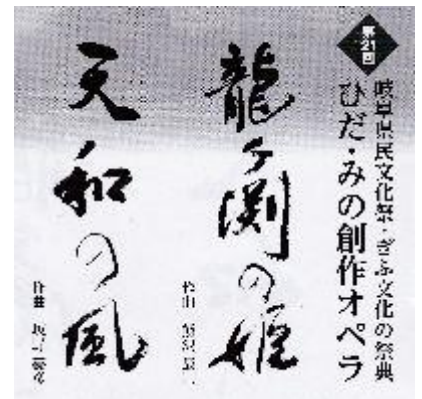 第21回
岐阜県民文化祭・ぎふ文化の祭典
ひだ・みの創作オペラ
龍ヶ淵の姫
作曲
天和の風
作曲